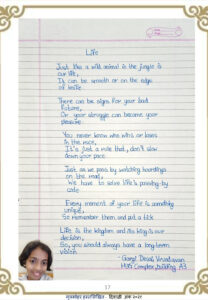 Life
Just like a wild animal in the jungle is
our life,
It can be smooth or on the edge
of knife
There can be signs for your bad
future,
Or your struggle can become your
pleasure
You never know who wins or loses
in the race,
It's just a rule that, don't slow
down your pace
Just as we pass by watching hoardings
on the road,
We have to solve life's passing-by
code
Every moment of your life is something
unique,
So remember them and put a tick
Life is the kingdom and its king is our
decision,
So, you should always have a long-term
vision
- Gargi Desai
Complex, Building A3
17